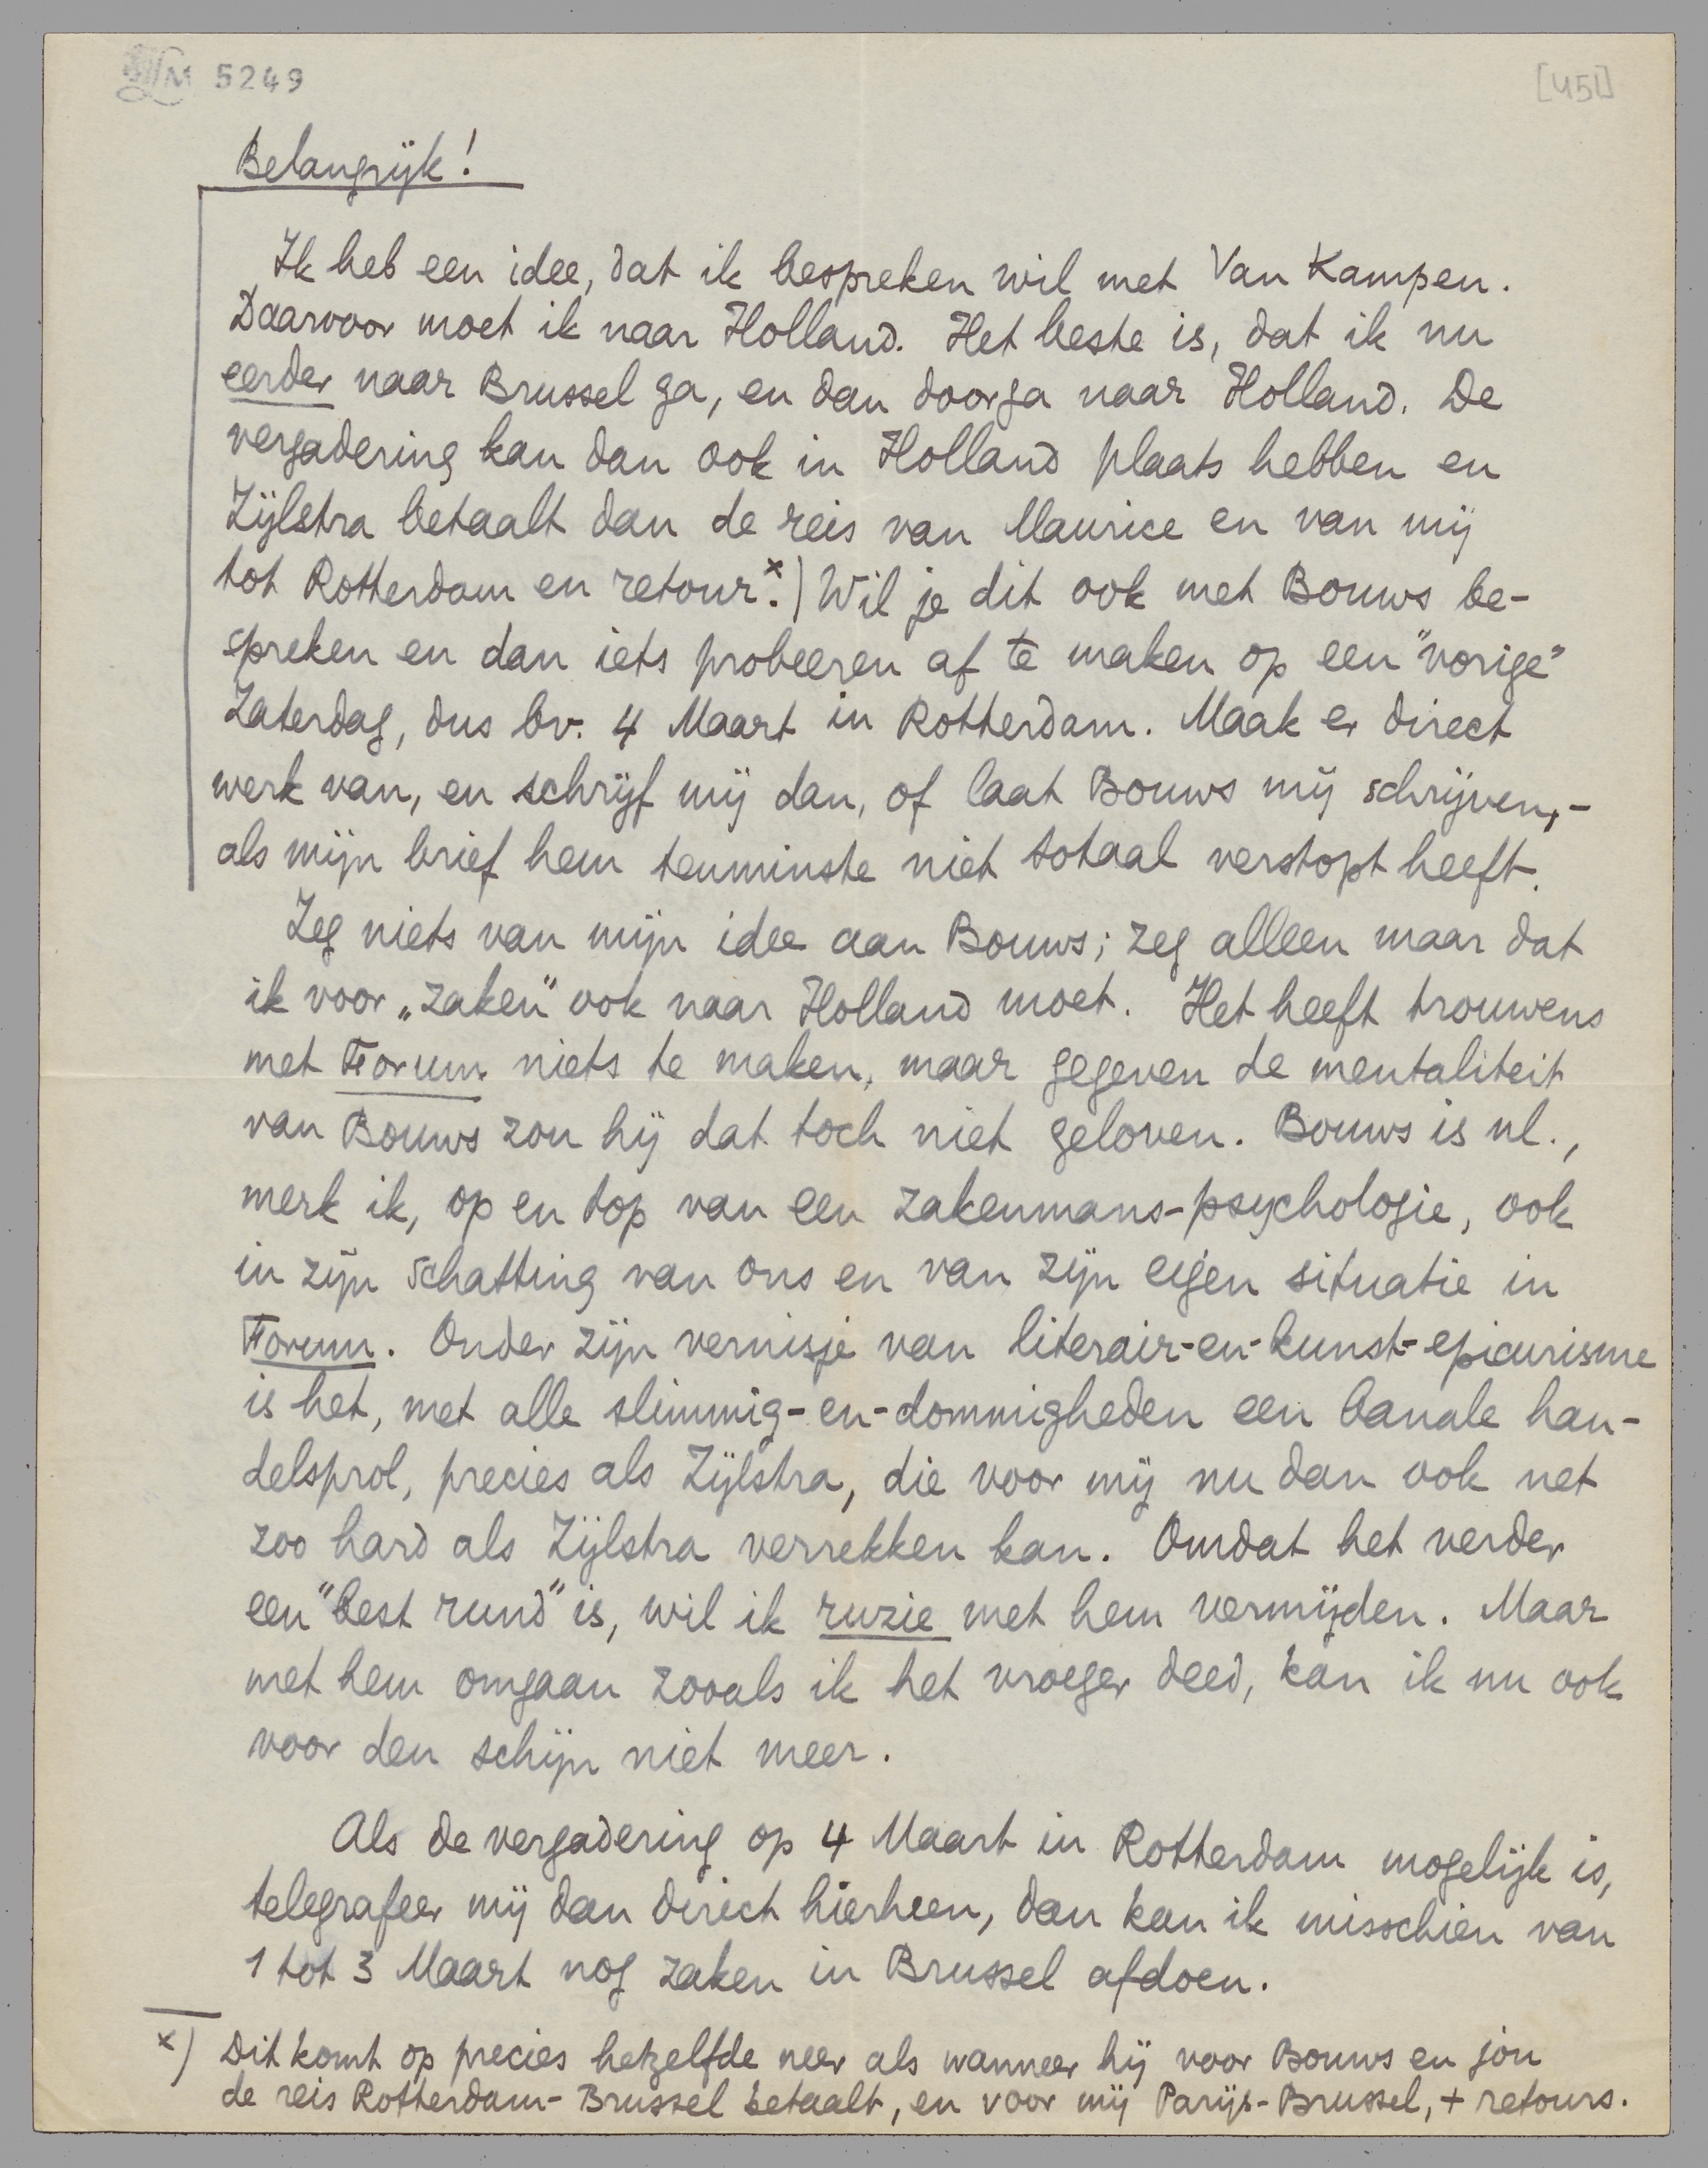 LM 5249
[451]
Belangrijk!
Ik heb een idee, dat ik bespreken wil met Van Kampen.
Daarvoor moet ik naar Holland. Het beste is, dat ik nu
eerder naar Brussel ga, en dan doorga naar Holland. De
vergadering kan dan ook in Holland plaats hebben en
Zijlstra betaalt dan de reis van Maurice en van mij
tot Rotterdam en retour.x) Wil je dit ook met Bouws be-
spreken en dan iets probeeren af te maken op een "vorige"
Zaterdag, dus bv. 4 Maart in Rotterdam. Maak er direct
werk van, en schrijf mij dan, of laat Bouws mij schrijven,-
als mijn brief hem tenminste niet totaal verstopt heeft.
Zeg niets van mijn idee aan Bouws; zeg alleen maar dat
ik voor „zaken” ook naar Holland moet. Het heeft trouwens
met Forum niets te maken, maar gegeven de mentaliteit
van Bouws zou hij dat toch niet gelooven. Bouws is nl.,
merk ik, op en top van een zakenmans-psychologie, ook
in zijn schatting van ons en van zijn eigen situatie in
Forum. Onder zijn vernisje van literair-en-kunst-epicurisme
is het, met alle slimmig-en-dommigheden een banale han-
delsprol, precies als Zijlstra, die voor mij nu dan ook net
zoo hard als Zijlstra verrekken kan. Omdat het verder
een "best rund" is, wil ik ruzie met hem vermijden. Maar
met hem omgaan zooals ik het vroeger deed, kan ik nu ook
voor den schijn niet meer.
Als de vergadering op 4 Maart in Rotterdam mogelijk is,
telegrafeer mij dan direct hierheen, dan kan ik misschien van
1 tot 3 Maart nog zaken in Brussel afdoen.
x) Dit komt op precies hetzelfde neer als wanneer hij voor Bouws en jou
de reis Rotterdam-Brussel betaalt, en voor mij Parijs-Brussel, + retours.